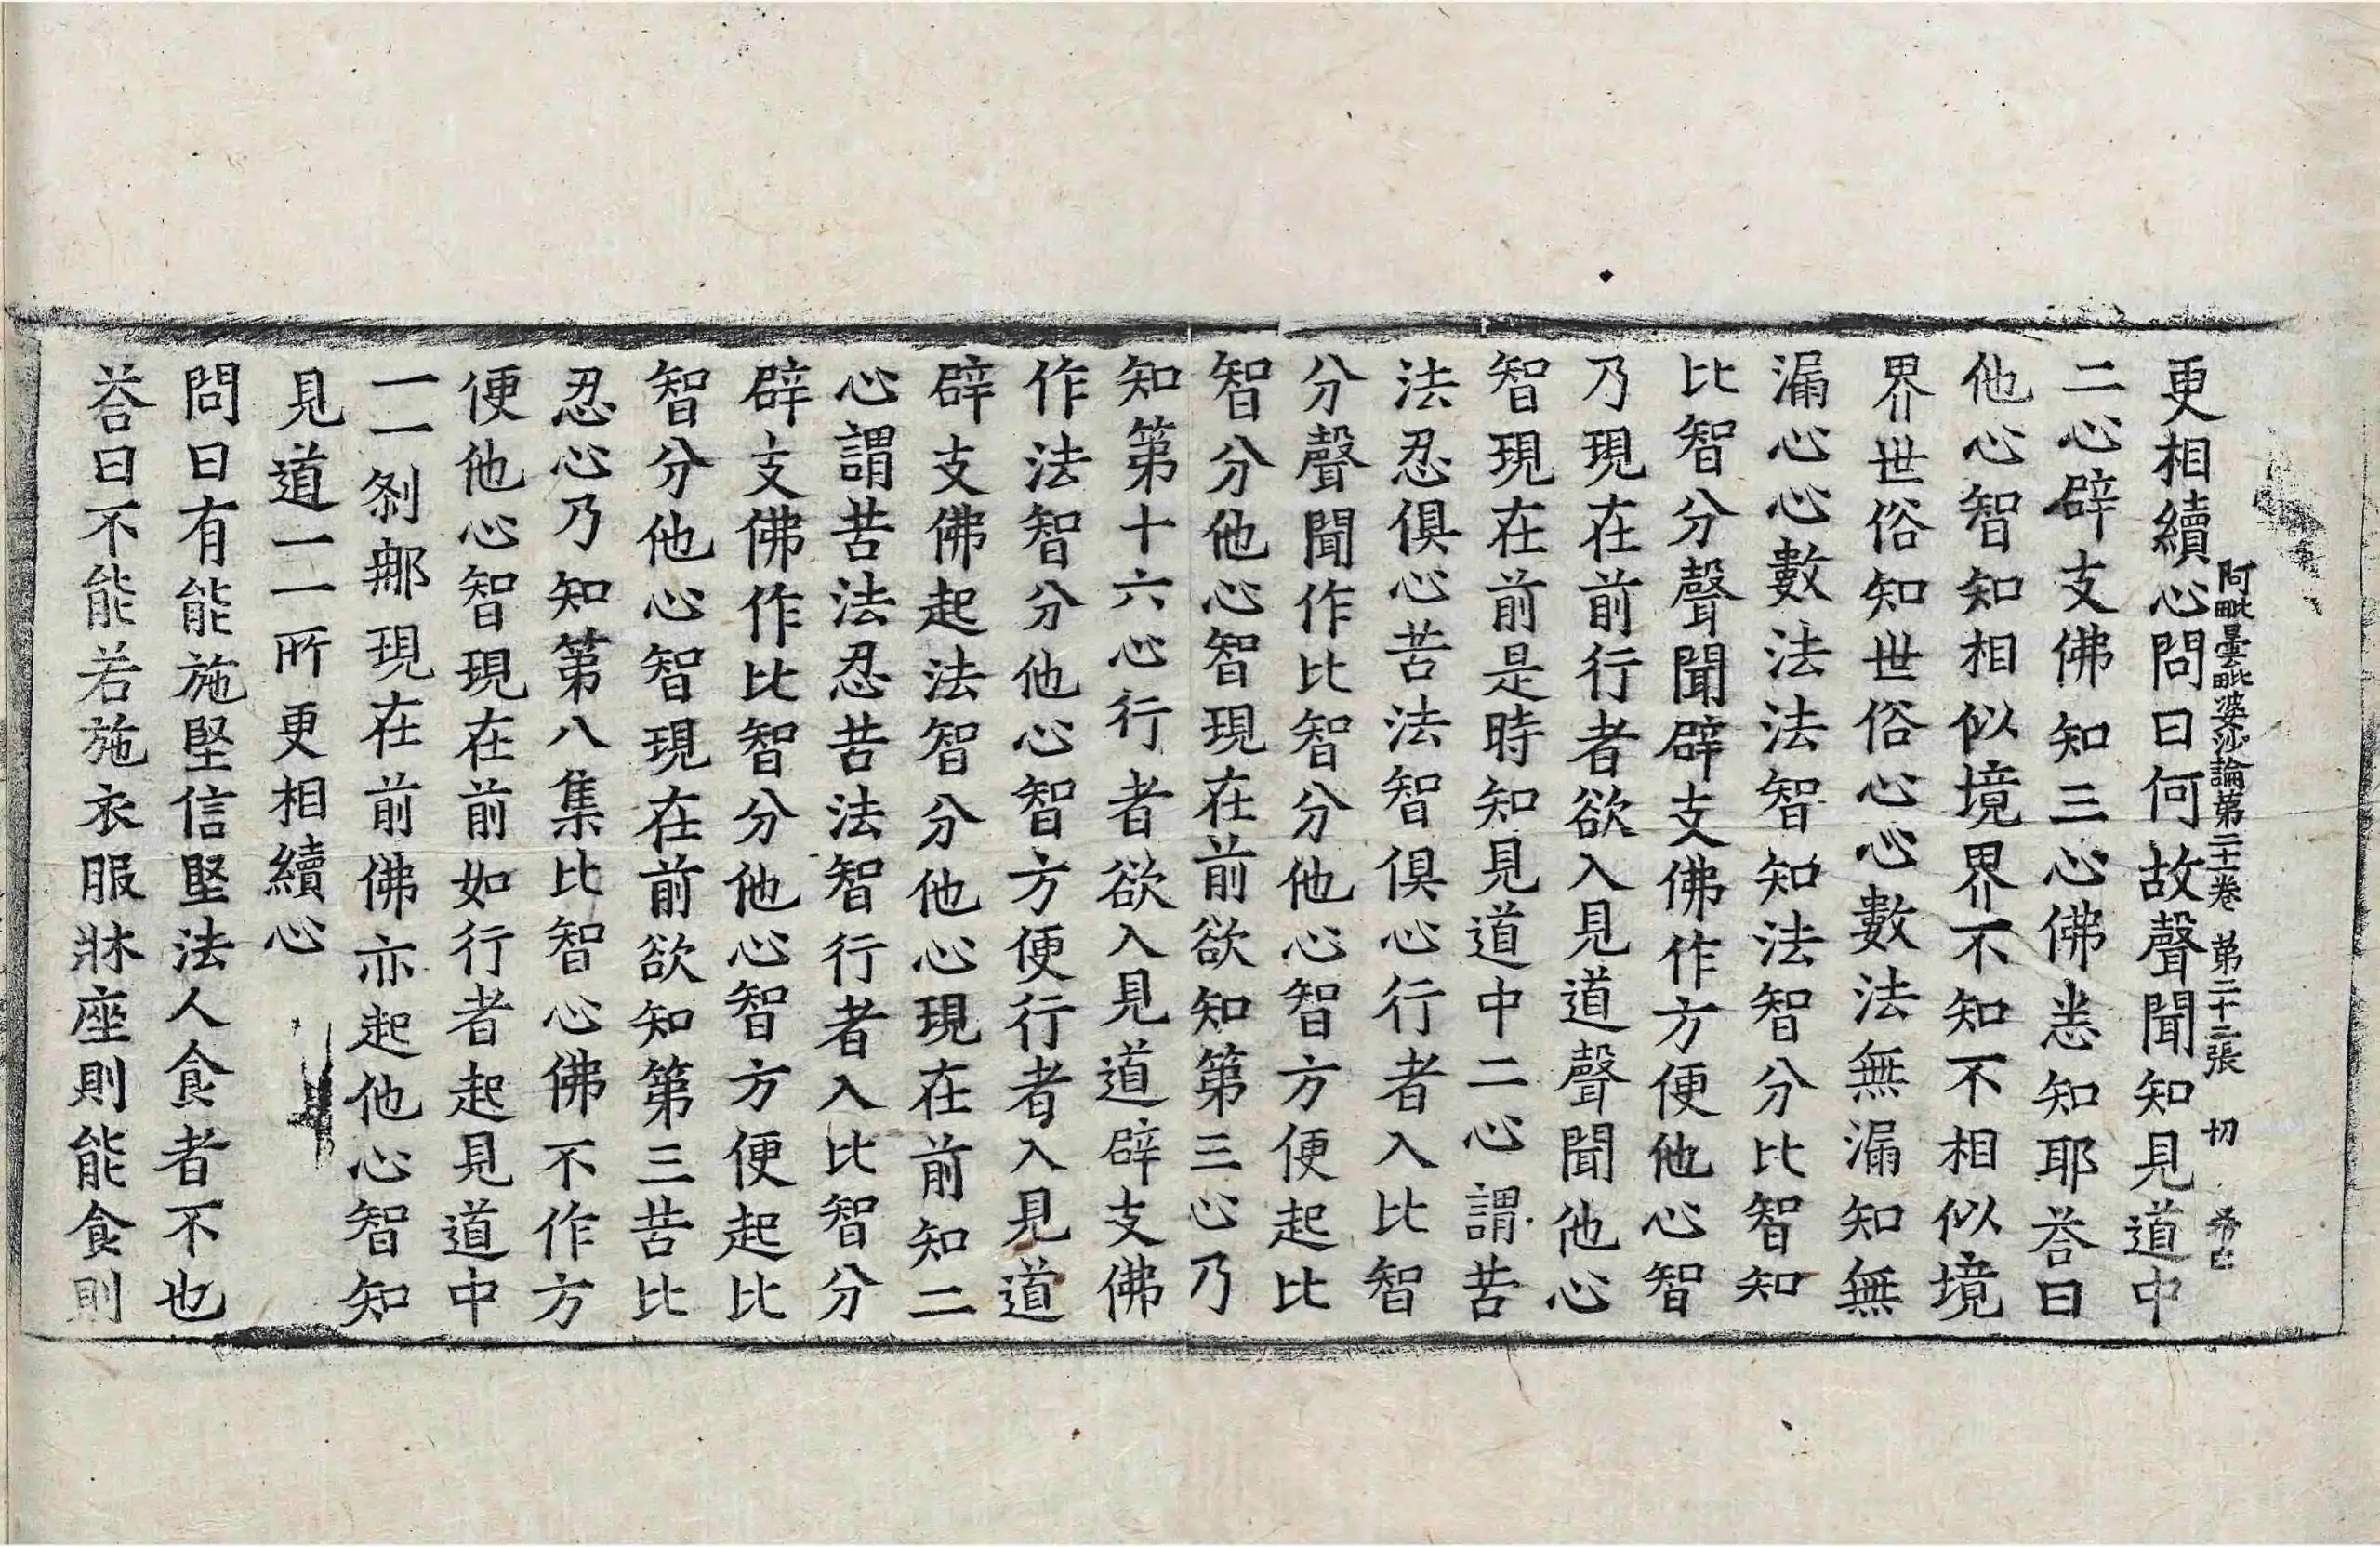 阿毗曇毗婆沙論第二十卷 第二十二張 切
更相續心問曰何故聲聞知見道中
二心辟支佛知三心佛悉知耶荅曰
他心智知相似境界不知不相似境
界世俗知世俗心心數法無漏知無
漏心心數法法智知法智分比智知
比智分聲聞辟支佛作方便他心智
乃現在前行者欲入見道聲聞他心
智現在前是時知見道中二心謂苦
法忍俱心苦法智俱心行者入比智
分聲聞作比智分他心智方便起比
智分他心智現在前欲知第三心乃
知第十六心行者欲入見道辟支佛
作法智分他心智方便行者入見道
辟支佛起法智分他心現在前知二
心謂苦法忍苦法智行者入比智分
辟支佛作比智分他心智方便起比
智分他心智現在前欲知第三苦比
忍心乃知第八集比智心佛不作方
便他心智現在前如行者起見道中
一一剎那現在前佛亦起他心智知
見道一一所更相續心
問曰有能施堅信堅法人食者不也
荅曰不能若施衣服牀座則能食則